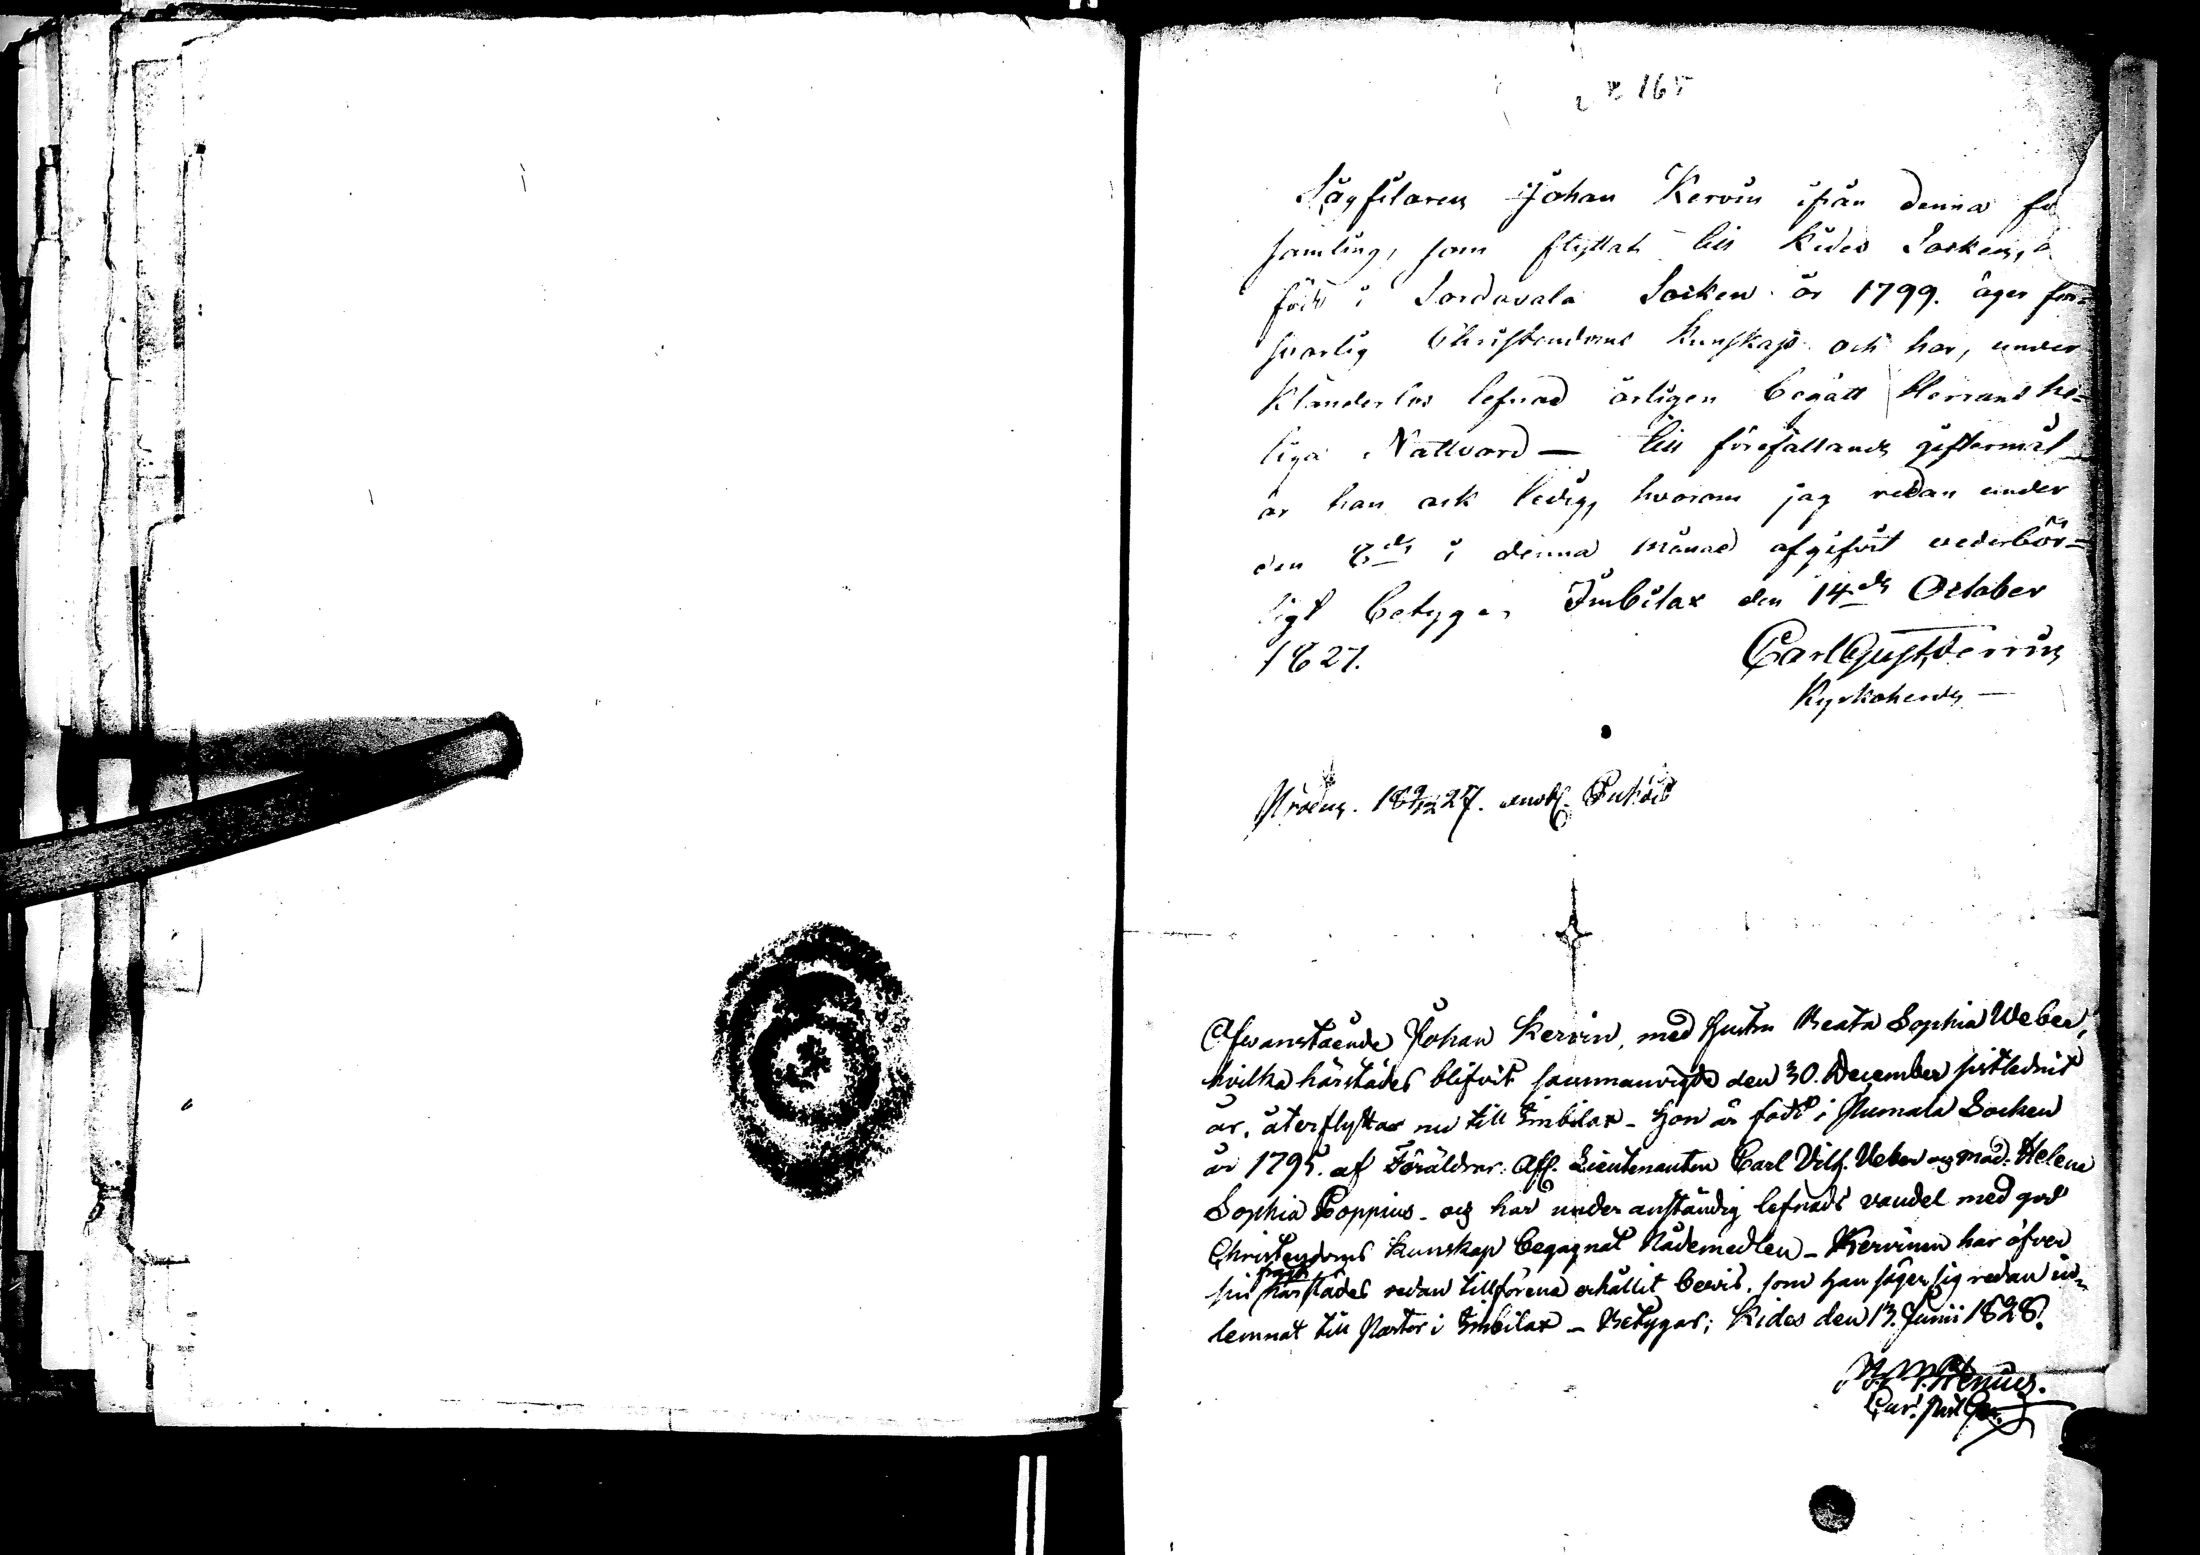 165
Sågfilaren Johan Kervin ifrån denna för
samling, som flyttat till Kides Socken, ä
född i Sordavala Socken år 1799. äger för=
svarlig Christendoms kunskap och har, under
klanderlös lefnad årligen begått Herrans he=
liga Nattvard — till förefallande giftermål
är han ock ledig, hvarom jag redan under
den 8de i denna månad afgifvit vederbör=
ligt betyg. Imbilax den 14de October
1827. Carl Gust.
Kyrkoherde —
18 9/12 27.
Ofvanstående Johan Kervin, med Hustru Beata Sophia Weber,
hvilka härstädes blifvit sammanvigde den 30. December sistledne
år, återflyttar nu till Imbilax - Hon är född i Pumala Socken
år 1795. af Föräldrar: Afl. Lieutenanten Carl Vilh. Veber och Mad. Helena
Sophia Poppius - och har under anständig lefnads vandel med god
Christendoms kunskap begagnat Nådemedlen - Kervinen har öfver
sin härstädes redan tillförene erhållit bevis, som han säger sig redan in=
lemnat till Pastor i Imbilax - Betygas; Kides den 13. Junii 1828.